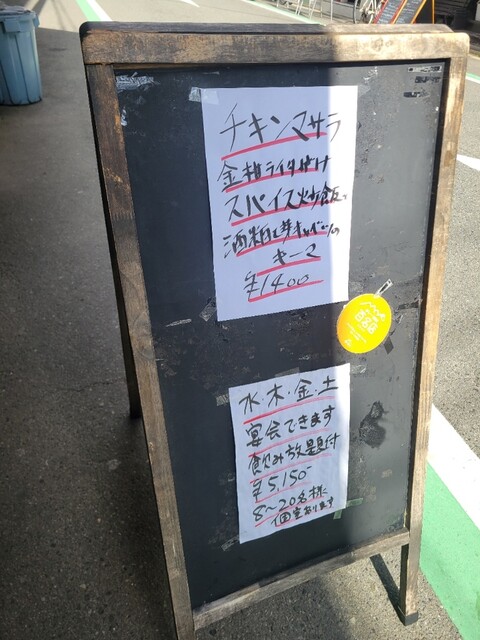 チキンマサラ
金柑ライタがけ
スパイス炒飯、
酒粕と芽キャベツの
キーマ
¥1400
水・木・金・土
宴会できます
飲み放題付
¥5,150-
8〜20名様
個室あります